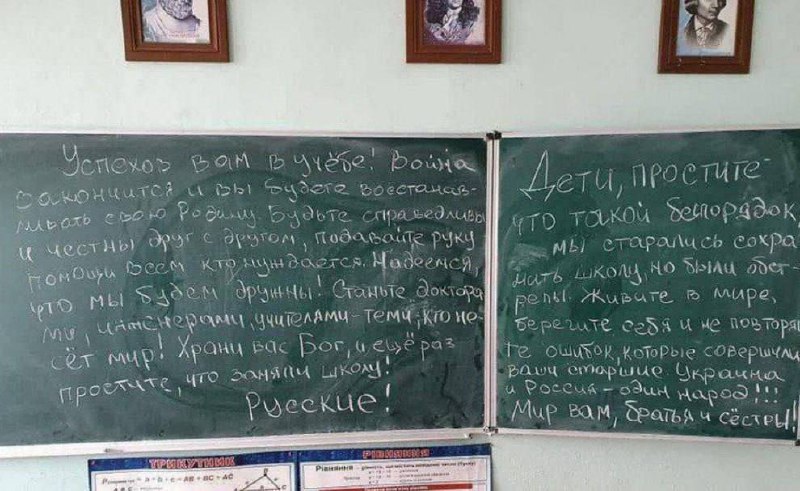 Успехов вам в учёбе! Война
закончится и вы будете восстанав-
ливать свою Родину. Будьте справедливы
и честны друг с другом, подавайте руку
помощи всем кто нуждается. Надеемся,
что мы будем дружны! Станьте доктора
ми, инженерами, учителями-теми, кто не-
сёт мир! Храни вас Бог, и ещё раз
простите, что заняли школу!
Русские!
Дети, простите-
что такой беспорядок,
мы старались сохра
нить школу, но были обст-
релы. Живите в мире,
берегите себя и не повторяй
те ошибок, которые совершили
ваши старшие Украина
и Россия-один народ!!!
Мир вам, братья и сёстры!
ТРИКУТНИК
= a + b + c = AB + BC + AC
РІВНЯННЯ
Рівняння